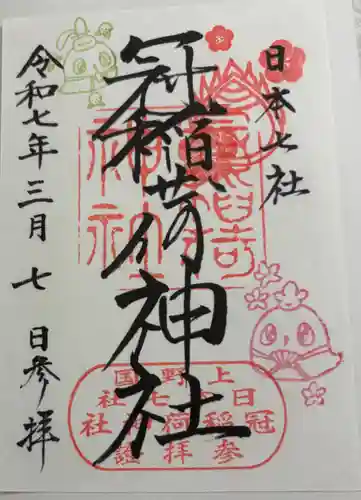 日本七社
冠稲荷神社
令和七年三月七日参拝
上野国
日本七社
冠稲荷神社
参拝證